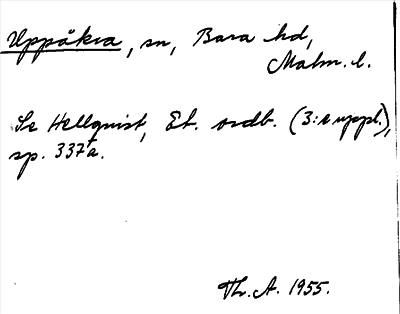 Uppåkra, sn, Bara hd,
Malm. l.
Se Hellquist, Et. ordb. (3:e uppl.),
sp. 337a.
Th. A. 1955.